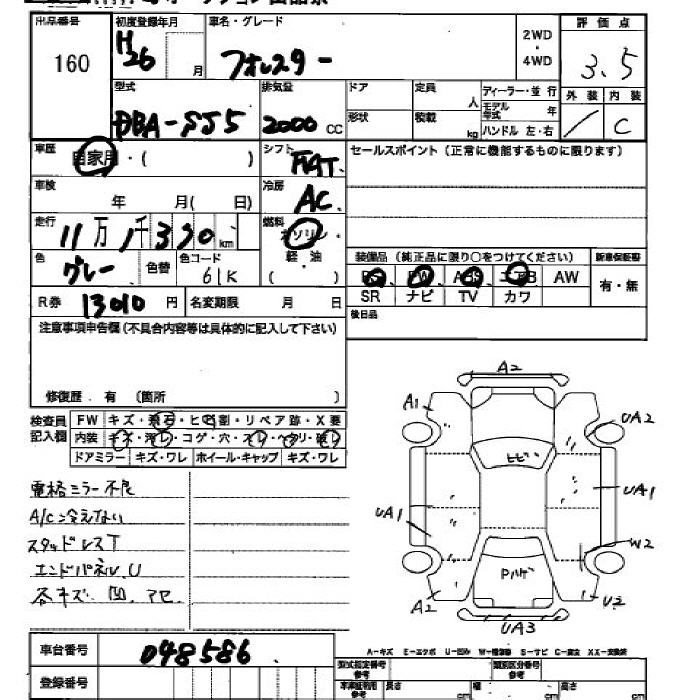 出品番号
160
初度登録年月
H26 月
車名・グレード
フォレスター
2WD
・
4WD
評価点
3.5
外装 内装
/ C
型式
DBA-SJ5
排気量
2000 CC
ドア
定員
人
ディーラー・並行
モデル年式 年
形状
積載
kg
ハンドル 左・右
車歴
自家用・( )
シフト
FAT
セールスポイント (正常に機能するものに限ります)
車検
年 月( 日)
冷房
AC
走行
11万 1千330 km
燃料
ガソリン
軽・油
( )
色
グレー
色替
色コード
61K
装備品 (純正品に限り○をつけてください)
新車保証書
PS PW ABS エアB AW
SR ナビ TV カワ
有・無
R券 13010 円
名変期限 月 日
後日品
注意事項申告欄(不具合内容等は具体的に記入して下さい)
修復歴 有 (箇所 )
検査員
記入欄
FW キズ・飛石・ヒビ割・リペア跡・X要
内装 キズ・汚レ・コゲ・穴・スレ・ヘタリ・破レ
ドアミラー キズ・ワレ ホイール・キャップ キズ・ワレ
電格ミラー不良
A/C冷えない
スタッドレスT
エンドパネルU
各キズ、凹、アセ、
A2
A1
UA2
ヒビ
UA1
UA1
W2
Pハゲ
A2
U2
UA3
A-キズ E-エクボ U-凹み W-補修跡 S-サビ C-腐食 XX-交換済
車台番号 048586
登録番号
型式指定番号
参考
類別区分番号
参考
長さ cm
幅 cm
高さ cm